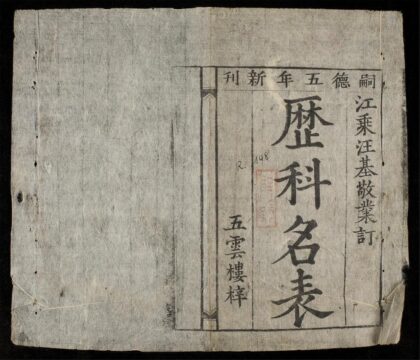 嗣德五年新刊
江乘汪基敬業訂
歴科名表
五雲樓梓